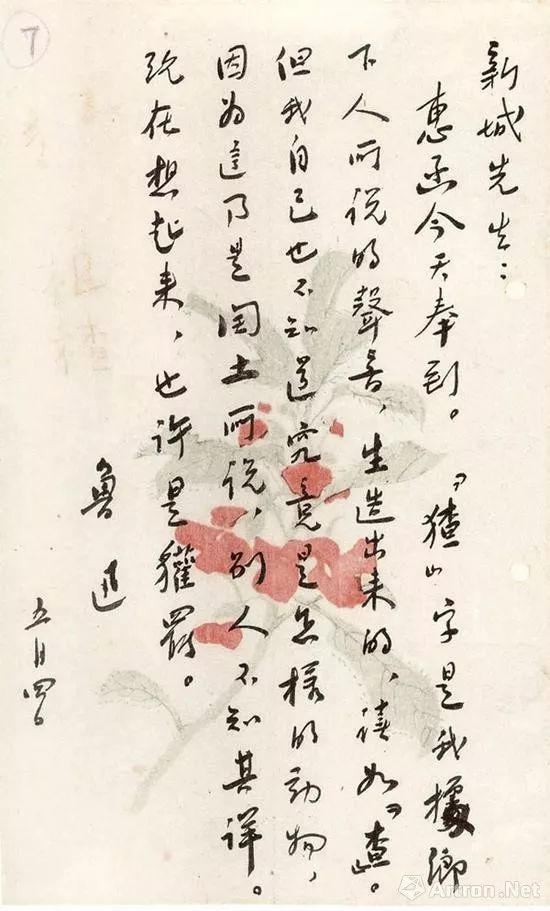 新城先生：
惠函今天奉到。「猹」字是我據鄉
下人所说的聲音，生造出来的，读如「查」。
但我自己也不知道究竟是怎樣的动物，
因为這乃是闰土所说，别人不知其详。
现在想起来，也许是獾罢。
鲁迅
五月四日
7
Artron.Net